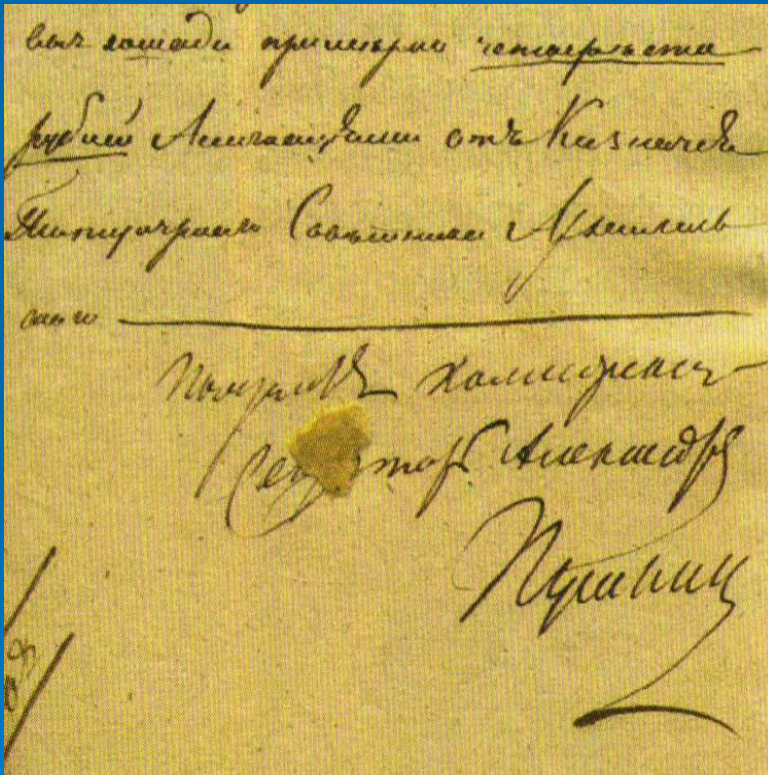 выя лошади примерно четыреста
рублей Ассигнациями отъ Казначея
Титулярнаго Советника Архангель
скаго
Получилъ Коллежскій
Секретарь Александръ
Пушкин